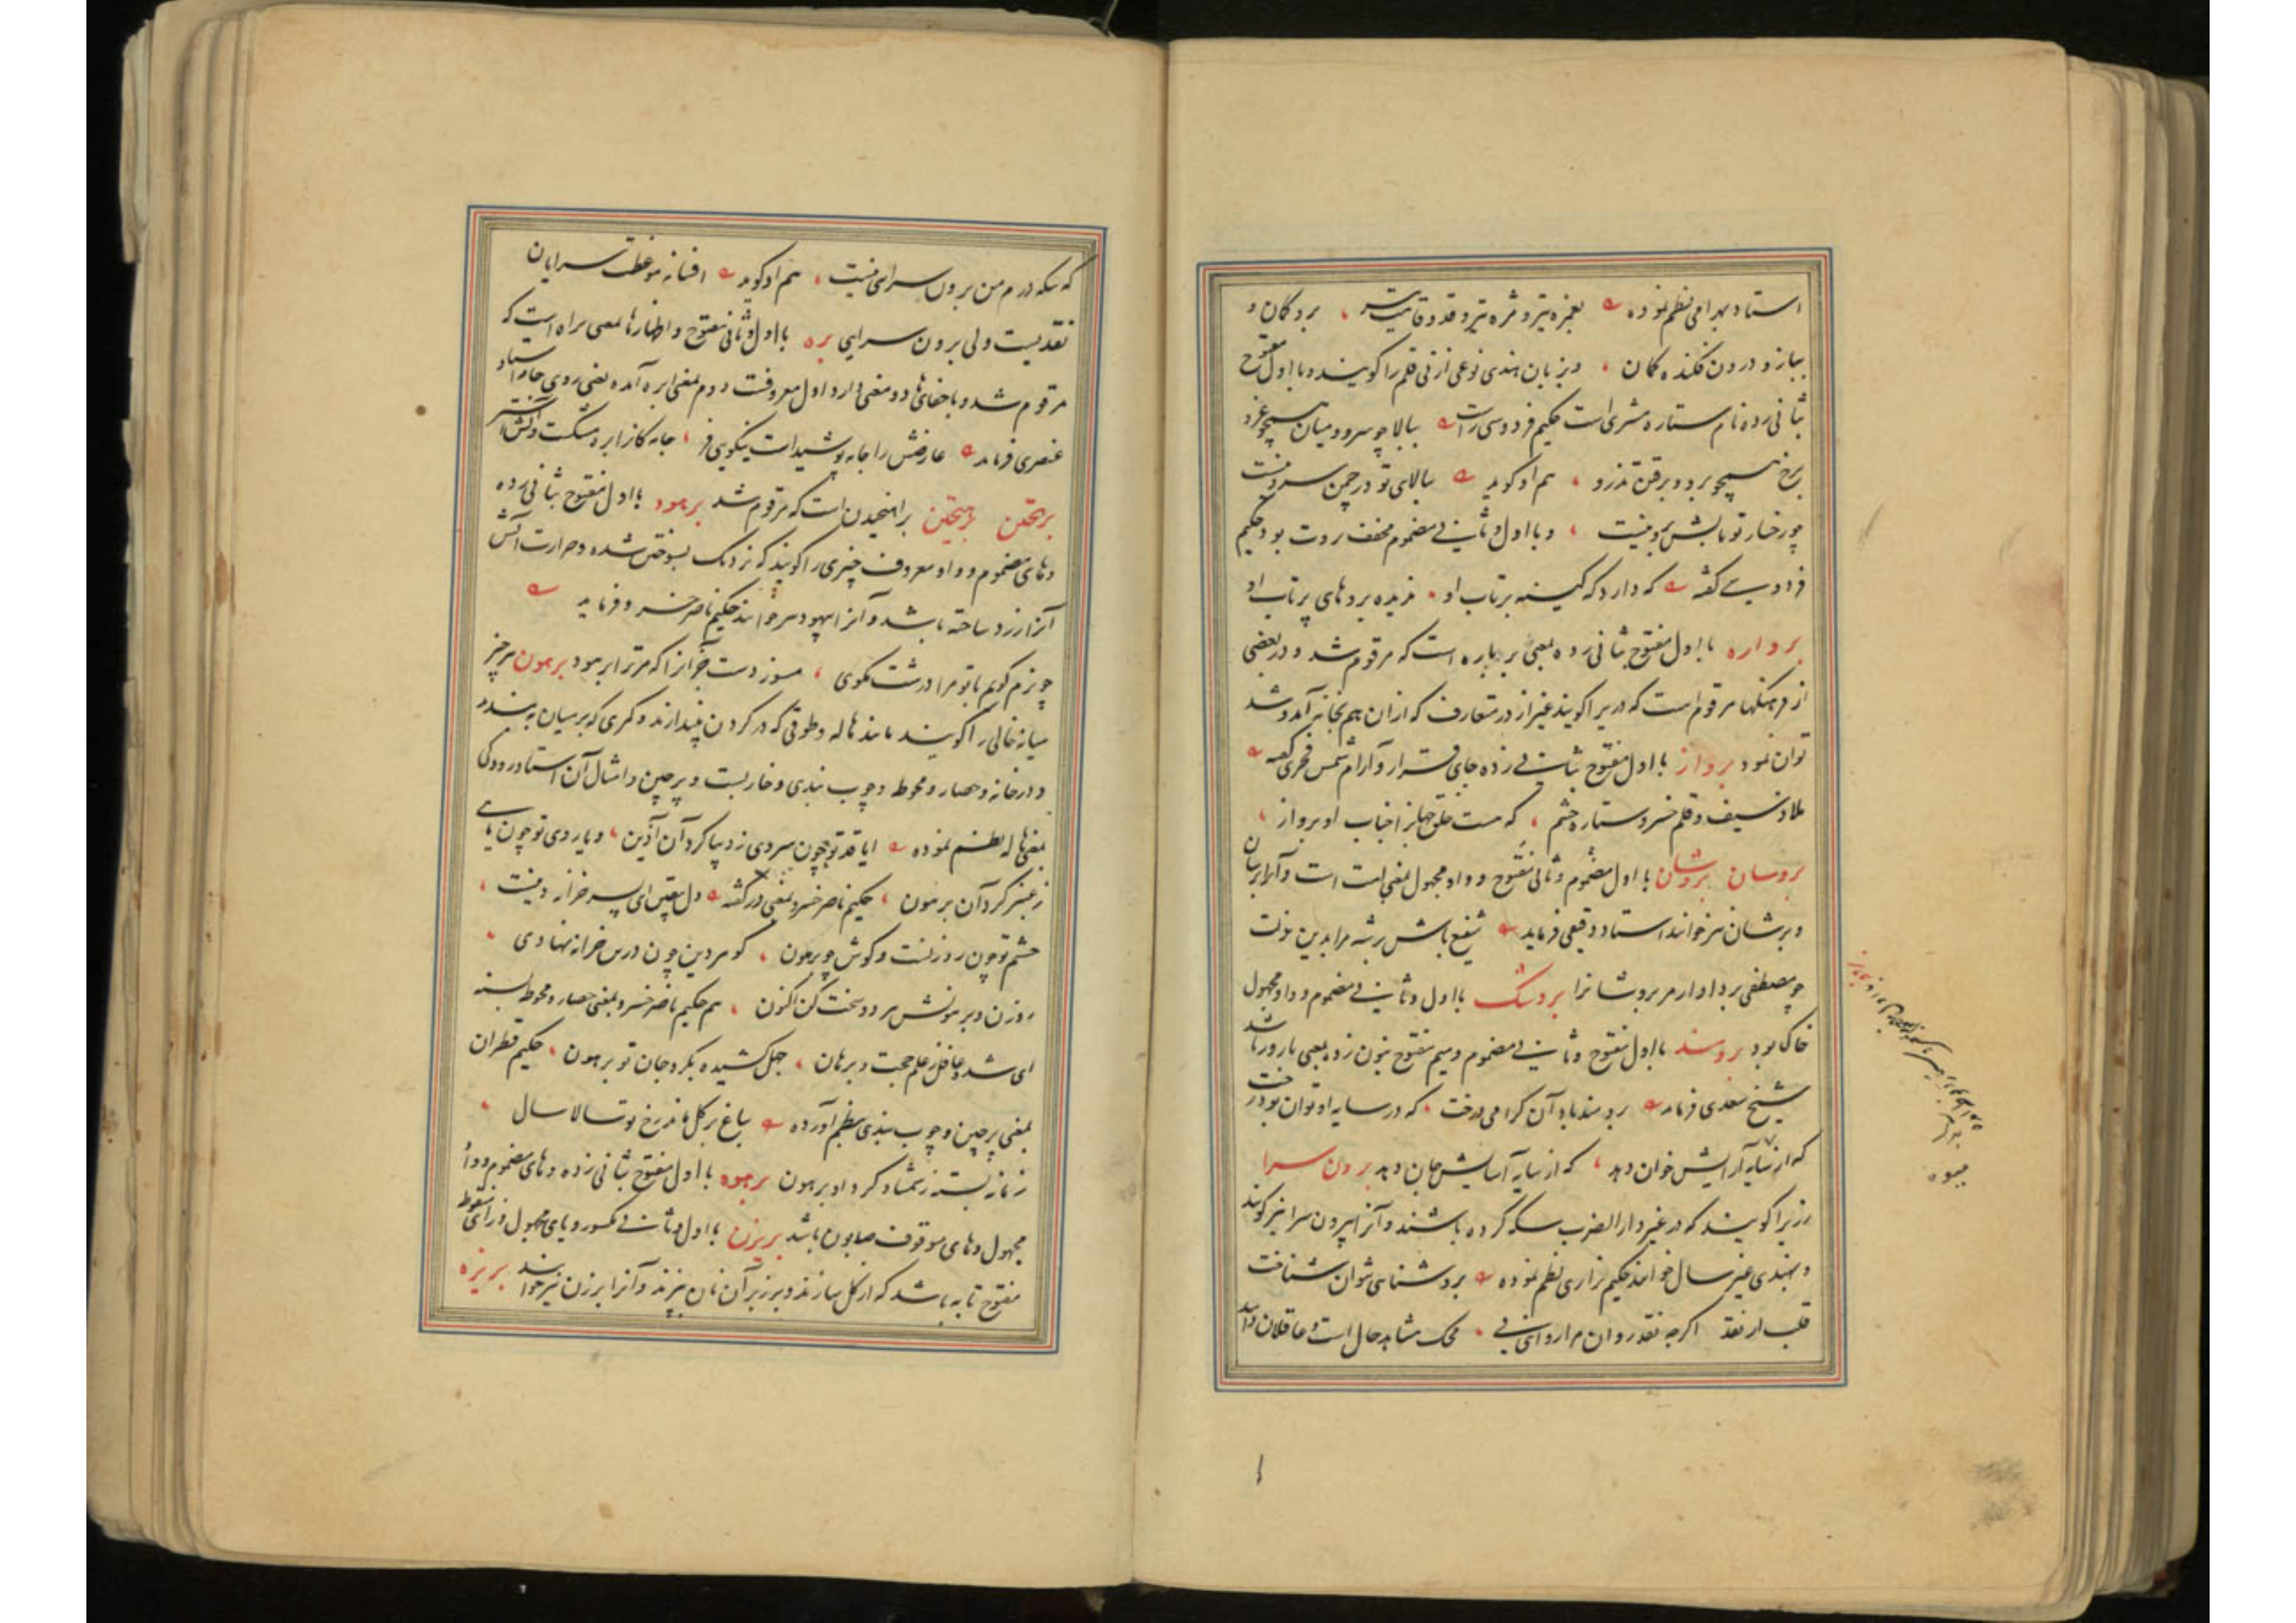 استاد بهرامی نظم نموده بغمزه تیر و مژه تیر و قد و قامت تیر برو کمان و
ببازو درون فکنده کمان و بزبان هندی نوعی از نی قلم را گویند و با اول مفتوح
بثانی زده نام ستاره مشتری است حکیم فردوسی راست ببالا چو سرو و میان همچو غرو
برخ همچو برو و برفتن تذرو هم او گوید ببالای تو در چمن سرو نیست
چو رخسار تو تابش برو نیست و با اول و ثانی مضموم مخفف بروت بود حکیم
فردوسی گفته که دارد که کینه پرتاب او بروهای پرتاب او
برواره با اول مفتوح بثانی زده بمعنی برباره است که مرقوم شد و در بعضی
از فرهنگها مرقوم است که دریرا گویند غیر از در متعارف که ازان هم بخانه آمد و شد
توان نمود برواز با اول مفتوح بثانی زده جای قرار و آرام شمس فخری گفته
ملاذ سیف و قلم خسرو ستاره حشم که هست خلق جهانرا جناب او برواز
بروسان بروشان با اول مضموم و ثانی مفتوح و واو مجهول بمعنی امت است و آنرا برسان
و برشان نیز خوانند استاد دقیقی فرماید شفیع باش بر شه مرا بدین زلت
چو مصطفی بر دادار مر بروشانرا بروشک با اول و ثانی مضموم و واو مجهول
خاک بود برومند با اول مفتوح و ثانی مضموم و میم مفتوح بنون زده بمعنی بارور باشد
شیخ سعدی فرماید برومند باد آن گرامی درخت که در سایه او توان بود رخت
که از سایه آرایش خوان دهد که از سایه آسایش جان دهد برون سرا
زریرا گویند که در غیر دارالضرب سکه کرده باشند و آنرا بیرون سرا نیز گویند
و بهندی غیر سال خوانند حکیم نزاری نظم نموده بروشنایی توان شناخت
قلب از نقد اگرچه نقد روان مرا روانی نی محک مشاهد حال است و عاقلان دانند
میوه
که سکه درم من برون سرای نیست هم او گوید افسانه موعظت سرایان
نقدیست ولی برون سرایی بره با اول و ثانی مفتوح و اظهار ها بمعنی براه است که
مرقوم شد و با خفای ها دو معنی دارد اول معروفست دوم بمعنی ابره آمده یعنی روی جامه استاد
عنصری فرماید عارضش را جامه پوشیدست نیکویی و فر جامه کانرا ابره مشکست و آتش آستر
برهختن برهیختن برآهنجیدن است که مرقوم شد برهود با اول مفتوح بثانی زده
و های مضموم و واو معروف چیزی را گویند که نزدیک بسوختن شده و حرارت آتش
آنرا زرد ساخته باشد و آنرا بیهود نیز خوانند حکیم ناصر خسرو فرماید
چو نرم گویم با تو مرا درشت مگوی مسوز دست جز آنرا که مر ترا برهود برهون هر چیز
میانه خالی را گویند مانند هاله و طوقی که در گردن بیندازند و کمری که بر میان بندند
و در خانه و حصار و محوطه و چوب بندی و خاربست و پرچین و امثال آن استاد رودکی
بمعنی هاله نظم نموده ایا قد تو چون سروی ز دیبا گرد آن آذین و یا روی تو چون ماهی
ز عنبر گرد آن برهون حکیم ناصر خسرو بمعنی در گفته دل یقین ای پسر خزانه دینست
چشم تو چون روزنست و گوش چو برهون گوهر دین چون درین خزانه نهادی
روزن و برهونش هر دو سخت کن اکنون هم حکیم ناصر خسرو بمعنی حصار و محوطه بسته
ای شده غافل ز علم حجت و برهان جهل کشیده بگرد جان تو برهون حکیم قطران
بمعنی پرچین و چوب بندی بنظم آورده بباغ بر گل مانند رخ تو تسالا سال
زمانه بسته ز شمشاد گرد او برهون برهوه با اول مفتوح بثانی زده و های مضموم و واو
مجهول و های موقوف صابون باشد بریزن با اول و ثانی مکسور و یای مجهول و زای منقوطه
مفتوح تابه باشد که از گل سازند و بر زبر آن نان پزند و آنرا برزن نیز خوانند بریزه